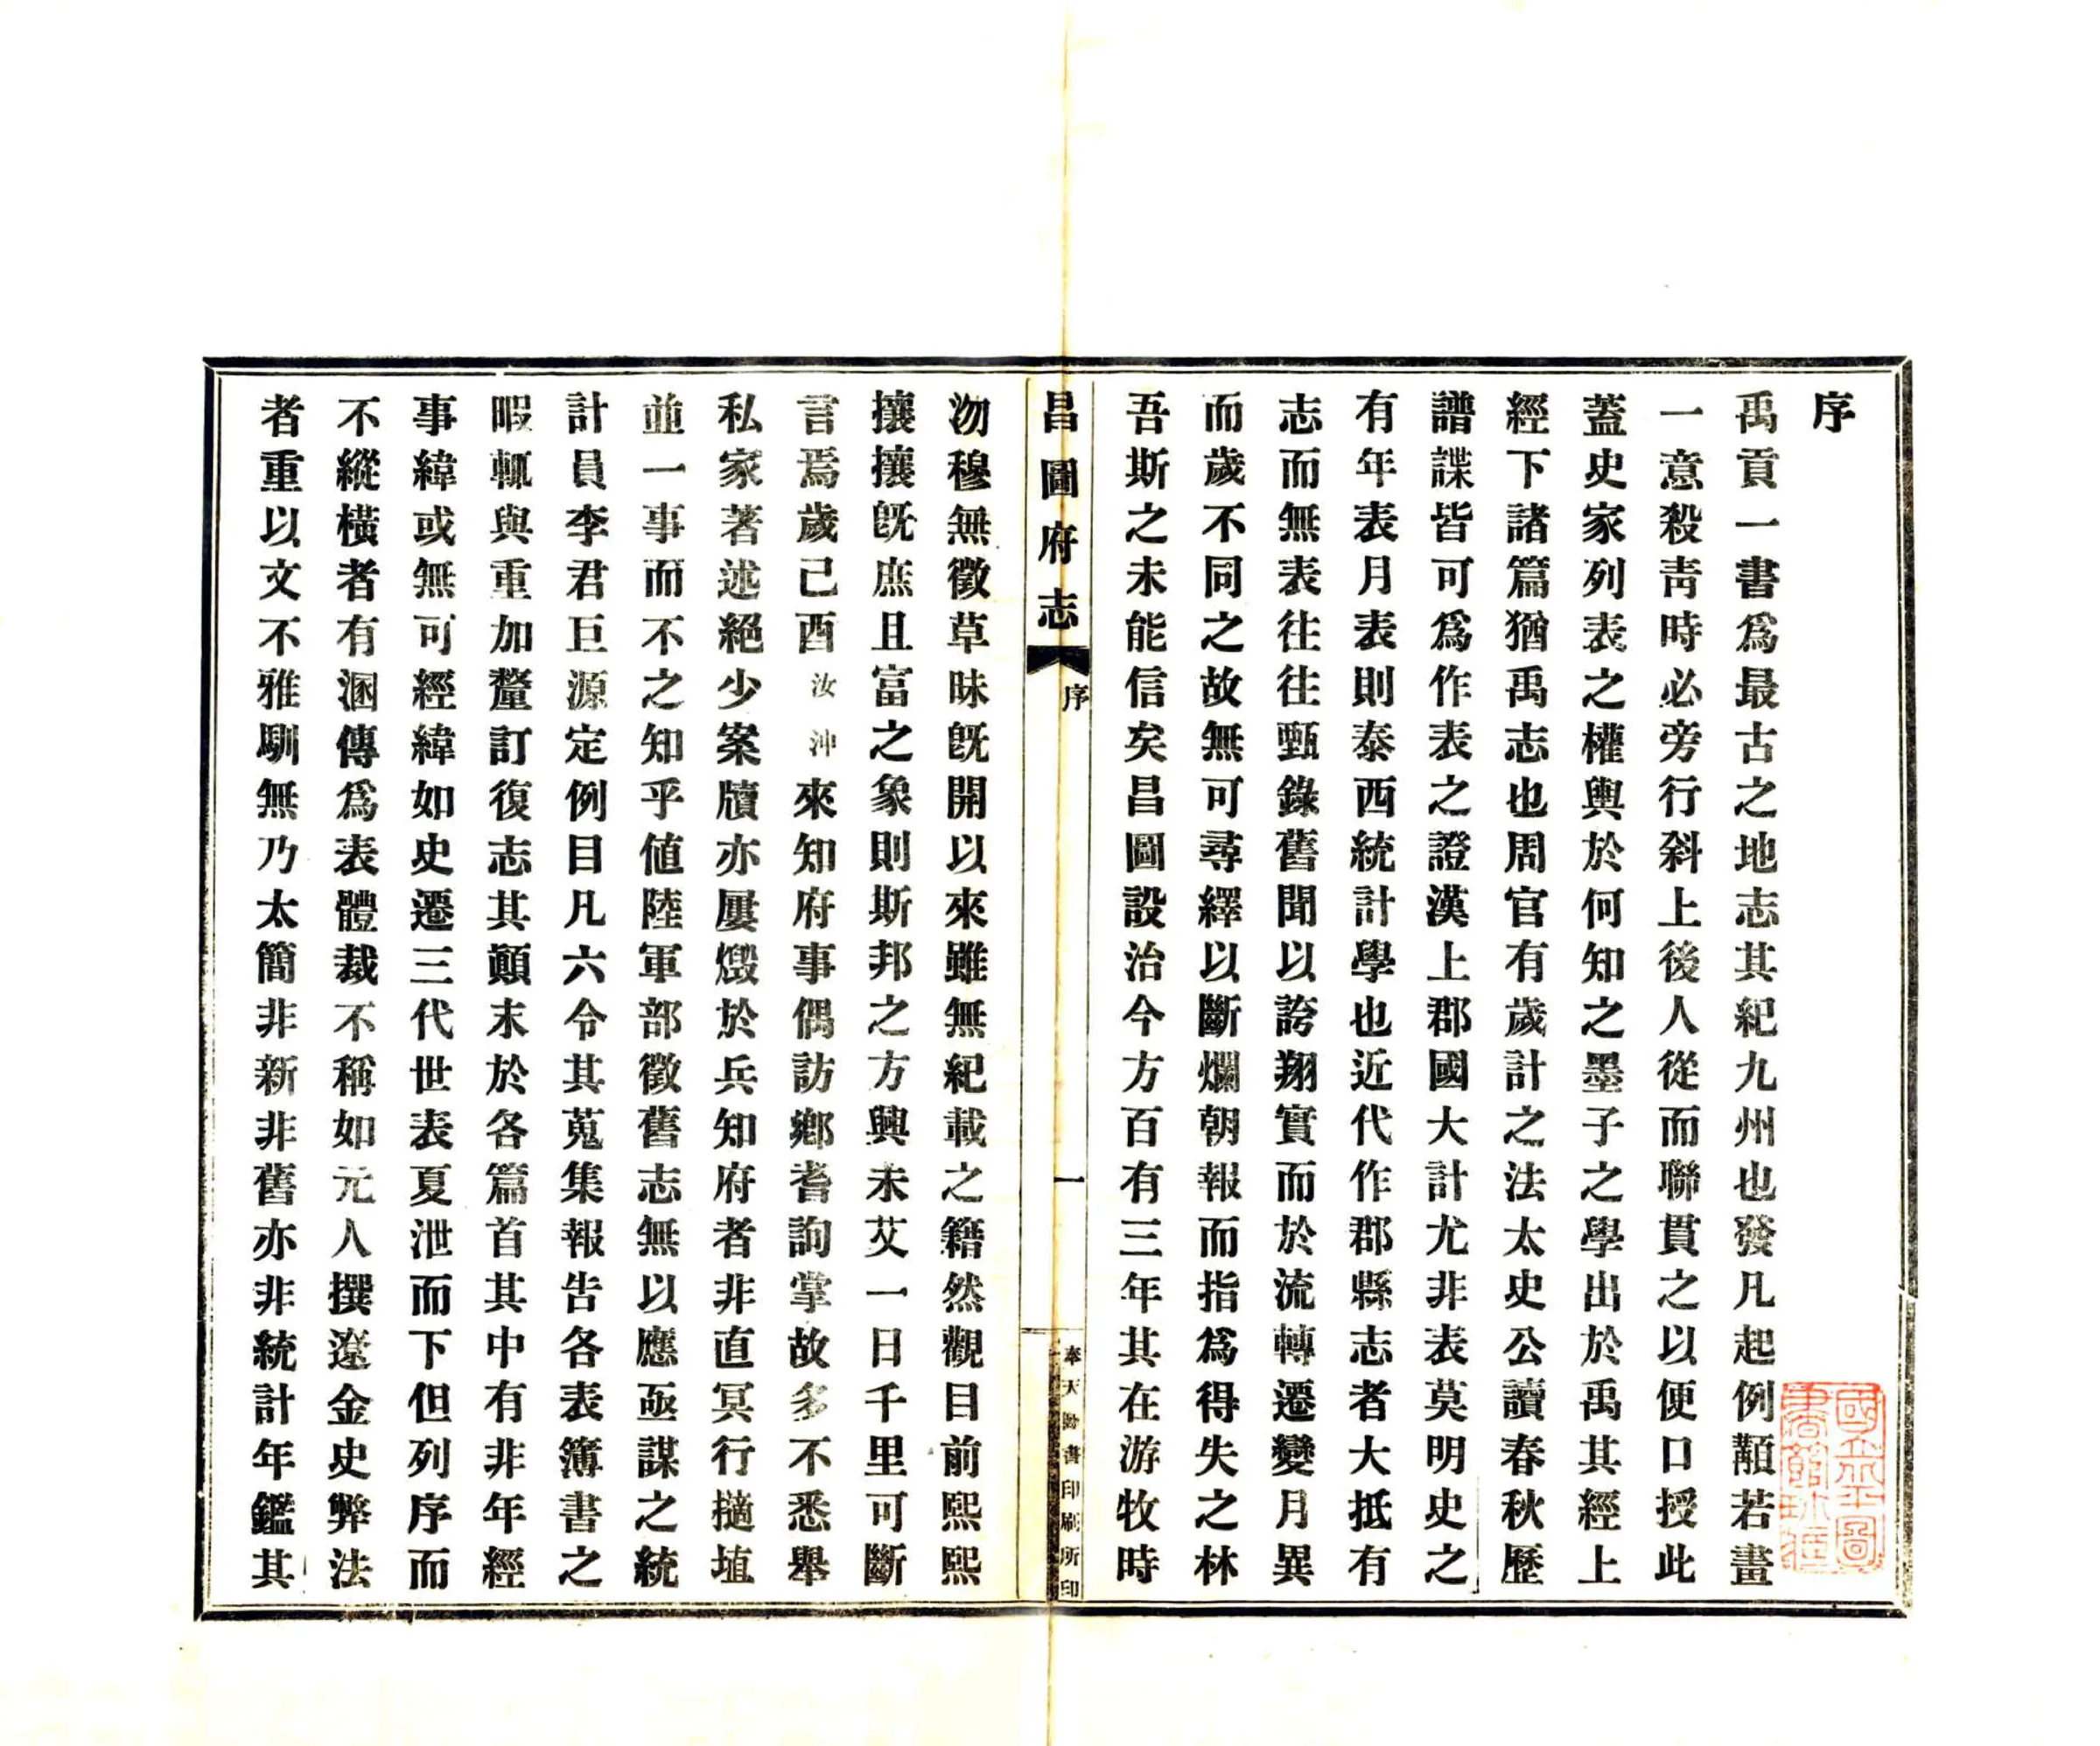 序
禹貢一書爲最古之地志其紀九州也發凡起例顜若畫
一意殺靑時必旁行斜上後人從而聯貫之以便口授此
蓋史家列表之權輿於何知之墨子之學出於禹其經上
經下諸篇猶禹志也周官有歲計之法太史公讀春秋歷
譜諜皆可爲作表之證漢上郡國大計尤非表莫明史之
有年表月表則泰西統計學也近代作郡縣志者大抵有
志而無表往往甄錄舊聞以誇翔實而於流轉遷變月異
而歲不同之故無可尋繹以斷爛朝報而指爲得失之林
吾斯之未能信矣昌圖設治今方百有三年其在游牧時
昌圖府志
序
一
奉天圖書印刷所印
沕穆無徵草昧旣開以來雖無紀載之籍然觀目前熙熙
攘攘旣庶且富之象則斯邦之方興未艾一日千里可斷
言焉歲己酉汝沖來知府事偶訪鄉耆詢掌故多不悉舉
私家著述絕少案牘亦屢燬於兵知府者非直冥行擿埴
並一事而不之知乎値陸軍部徵舊志無以應亟謀之統
計員李君巨源定例目凡六令其蒐集報告各表簿書之
暇輒與重加釐訂復志其顚末於各篇首其中有非年經
事緯或無可經緯如史遷三代世表夏泄而下但列序而
不縱橫者有溷傳爲表體裁不稱如元人撰遼金史弊法
者重以文不雅馴無乃太簡非新非舊亦非統計年鑑其